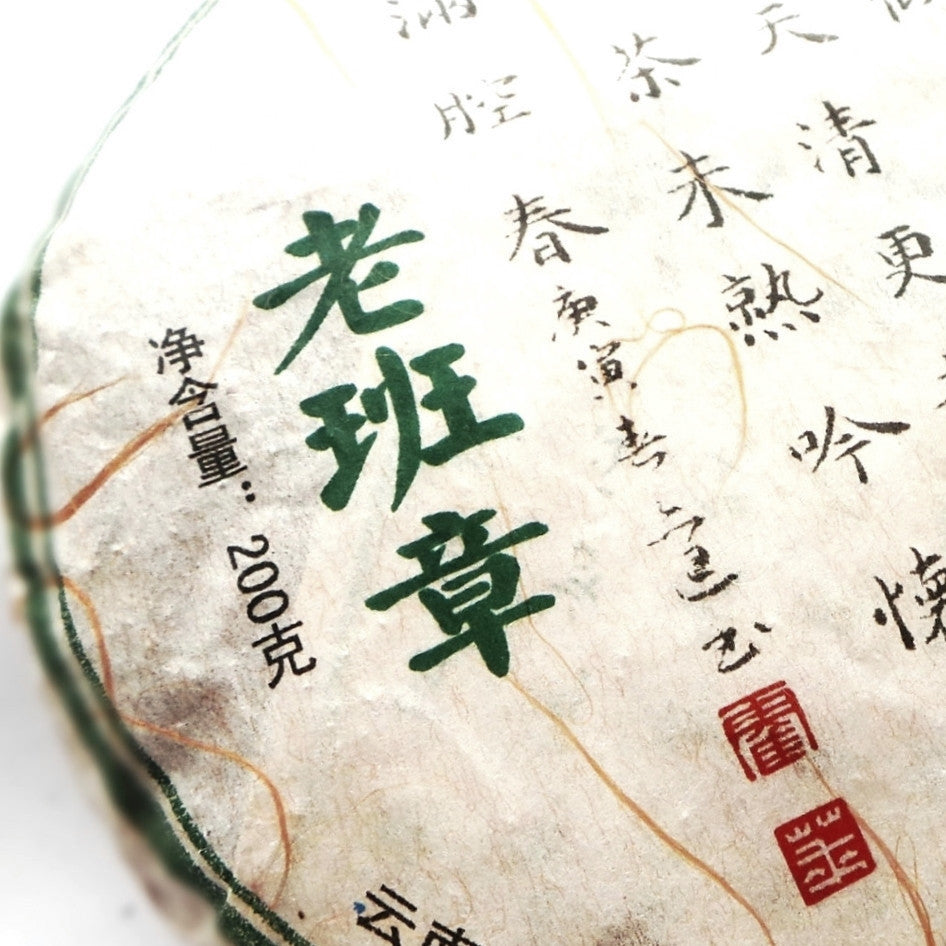 天清更
茶未熟吟懷
滿腔春
庚寅春 书
老班章
净含量：200克
云南